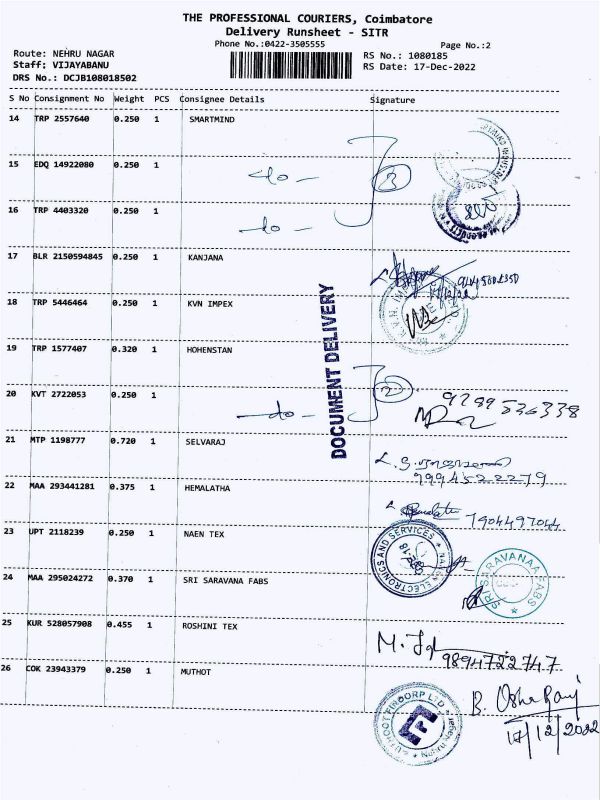 THE PROFESSIONAL COURIERS, Coimbatore
Delivery Runsheet - SITR
Phone No.:0422-3505555
Page No.:2
Route: NEHRU NAGAR
RS No.: 1080185
Staff: VIJAYABANU
RS Date: 17-Dec-2022
DRS No.: DCJB108018502
S No Consignment No Weight PCS Consignee Details Signature
14 TRP 2557640 0.250 1 SMARTMIND
15 EDQ 14922080 0.250 1 -do- 3
16 TRP 4403320 0.250 1 -do-
17 BLR 2150594845 0.250 1 KANJANA
18 TRP 5446464 0.250 1 KVN IMPEX
19 TRP 1577407 0.320 1 HOHENSTAN
DOCUMENT DELIVERY
20 KVT 2722053 0.250 1 -do- 2 9789526338
21 MTP 1198777 0.720 1 SELVARAJ
22 MAA 293441281 0.375 1 HEMALATHA
Hemalatha 7904497044
23 UPT 2118239 0.250 1 NAEN TEX
ELECTRONICS AND SERVICES
24 MAA 295024272 0.370 1 SRI SARAVANA FABS
SRI SARAVANAA FABS
25 KUR 528057908 0.455 1 ROSHINI TEX
9894722747
26 COK 23943379 0.250 1 MUTHOT
MUTHOOT FINCORP LTD.
B. Usha Rani
17/12/2022